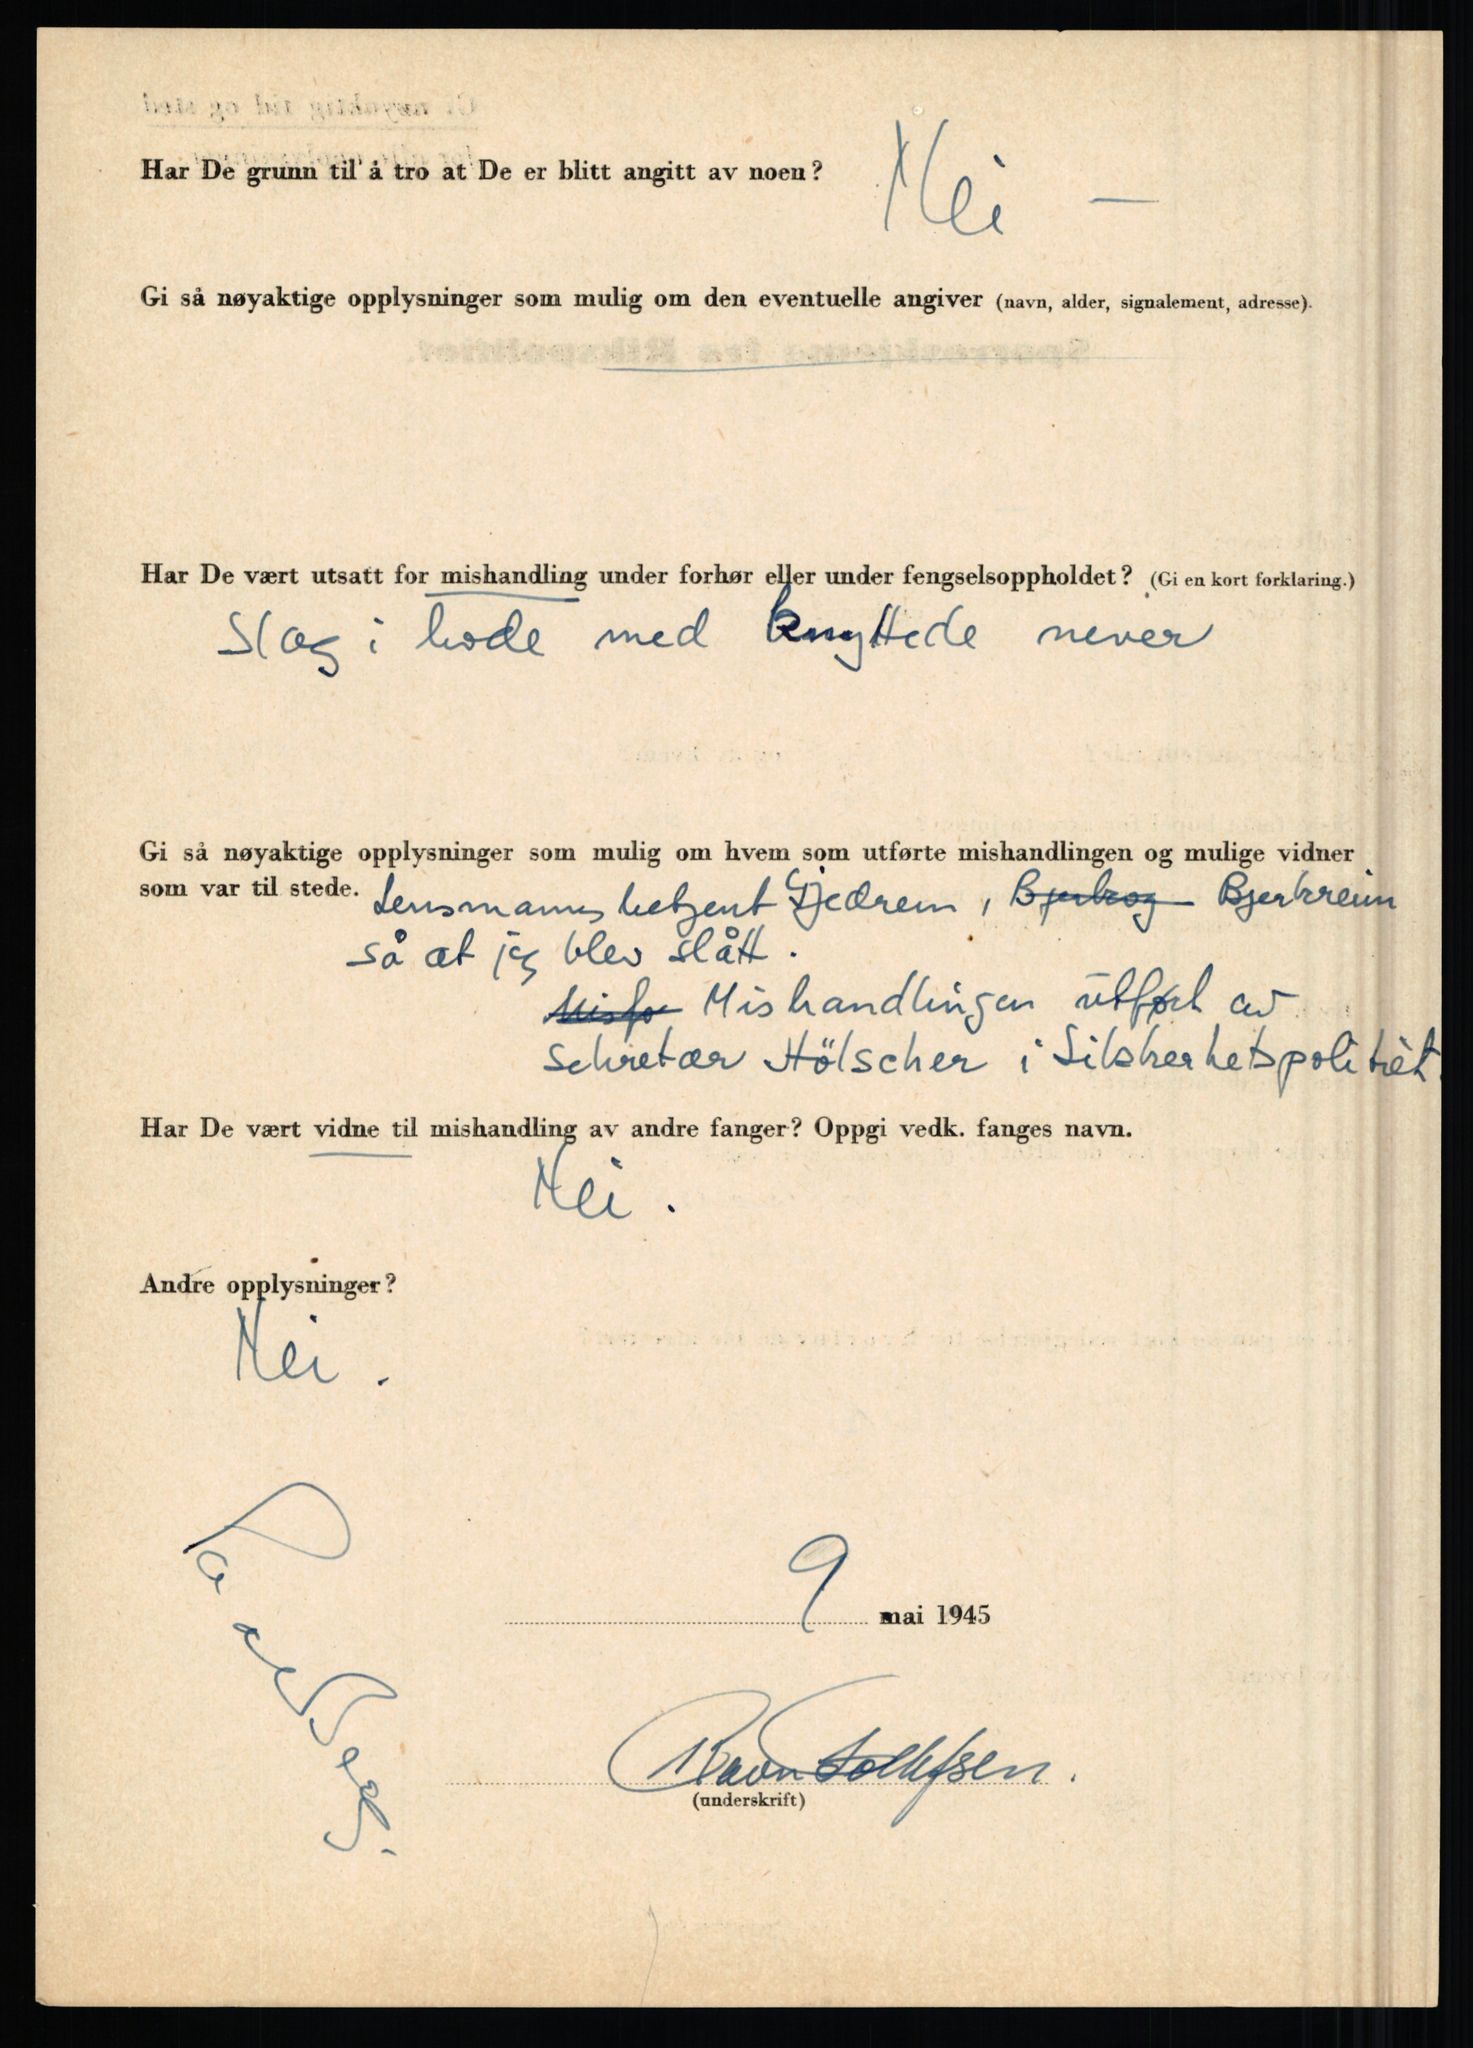 Har De grunn til å tro at De er blitt angitt av noen? Nei —
Gi så nøyaktige opplysninger som mulig om den eventuelle angiver (navn, alder, signalement, adresse).
Har De vært utsatt for mishandling under forhør eller under fengselsoppholdet? (Gi en kort forklaring.)
Slag i hode med knyttede never
Gi så nøyaktige opplysninger som mulig om hvem som utførte mishandlingen og mulige vidner
som var til stede. Lensmannsbetjent Gjedrem, Bjerkreim
så at jeg blev slått.
Mishandlingen utført av
sekretær Hölscher i Sikkerhetspolitiet.
Har De vært vidne til mishandling av andre fanger? Oppgi vedk. fanges navn.
Nei.
Andre opplysninger?
Nei.
9 mai 1945
Ravn Tollefsen.
(underskrift)